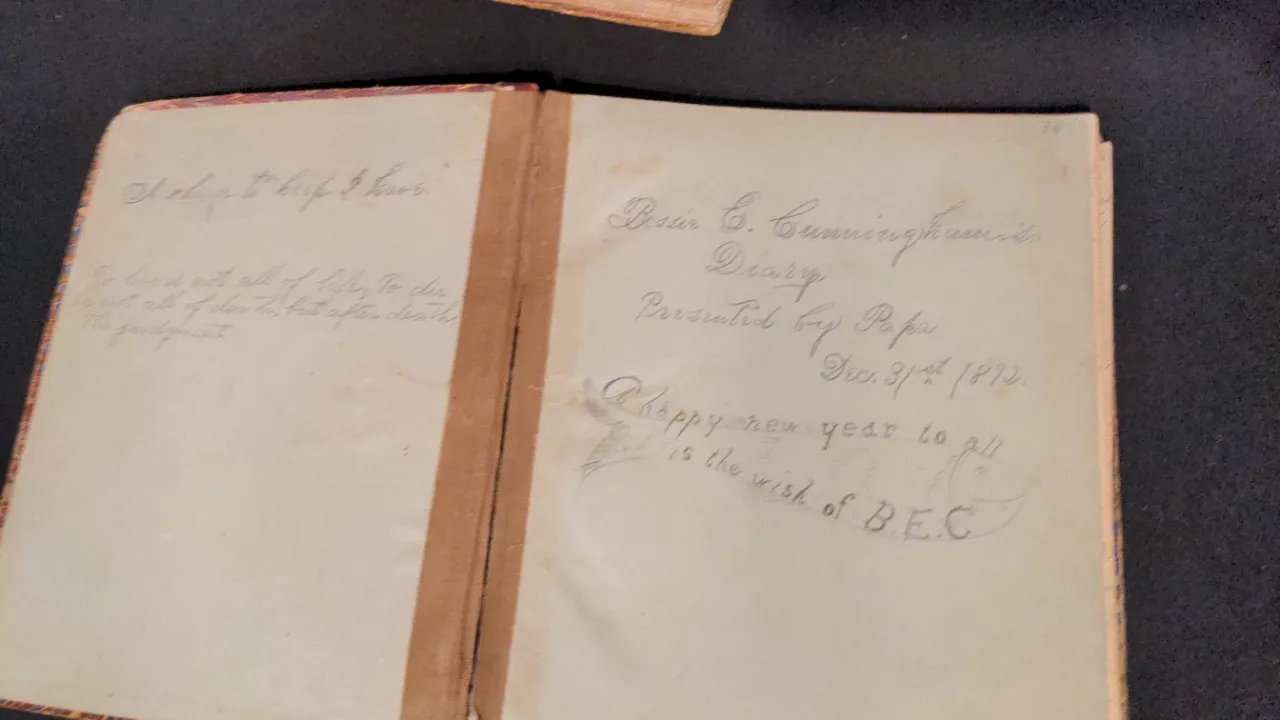 "A charge to keep I have."
To live is not all of life, To die
is not all of death, but after death,
the judgment
Bessie E. Cunningham's
Diary.
Presented by Papa
Dec. 31st 1892.
A happy new year to all
is the wish of B.E.C